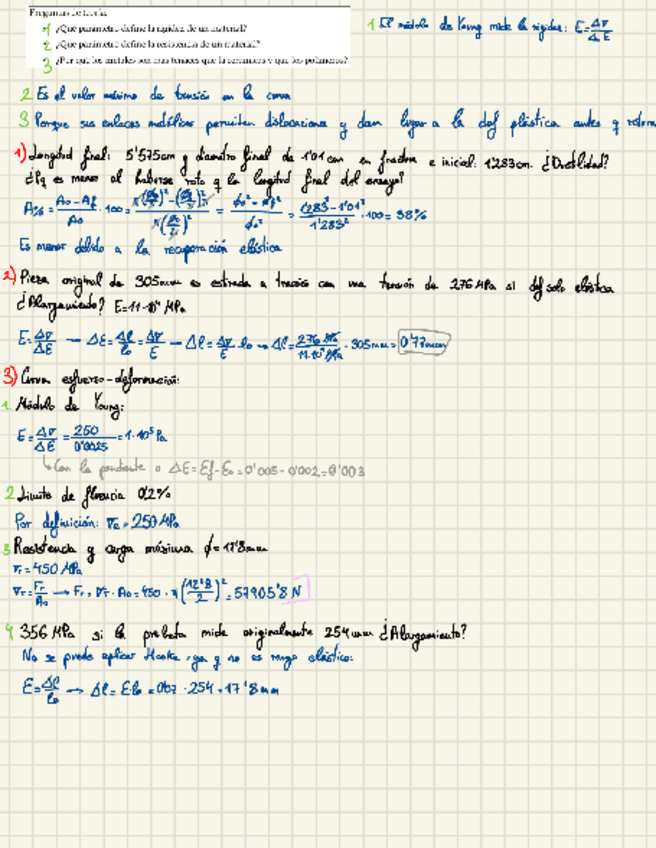 Preguntas de teoría:
1 ¿Qué parámetro define la rigidez de un material?
1 El módulo de Young mide la rigidez: E=Δσ/ΔE
2 ¿Qué parámetro define la resistencia de un material?
3 ¿Por qué los metales son más tenaces que la cerámicos y que los polímeros?
2 Es el valor máximo de tensión en la curva
3 Porque sus enlaces metálicos permiten dislocaciones y dan lugar a la def plástica antes q
1) Longitud final: 5'575cm y diámetro final de 1'01 cm en fractura e inicial: 1'283cm. ¿Ductilidad?
¿Pq es menor al haberse roto q la longitud final del ensayo?
A%=(Ao-Af)/Ao·100=(π(φo/2)²-(φf/2)²)/(π(φo/2)²)=(φo²-φf²)/φo²=(1'283²-1'01²)/1'283²·100=38%
Es menor debido a la recuperación elástica
2) Pieza original de 305mm es estirada a tracción con una tensión de 276MPa si def solo elástica
¿Alargamiento? E=11·10⁴ MPa
E=Δσ/ΔE → ΔE=Δl/lo=Δσ/E → Δl=Δσ/E·lo → Δl=276 MPa/11·10⁴ MPa·305mm=0'77mm
3) Curva esfuerzo-deformación:
1. Módulo de Young:
E=Δσ/ΔE=250/0'0025=1·10⁵Pa
↳ Con la pendiente o ΔE=Ef-Eo=0'005-0'002=0'003
2 Límite de fluencia 0'2%
Por definición: σe=250MPa
3 Resistencia y carga máxima φ=12'8mm
σr=450MPa
σr=Fr/Ao → Fr=σr·Ao=450·π(12'8/2)²=57905'8N
4 356MPa si la probeta mide originalmente 254mm ¿Alargamiento?
No se puede aplicar Hooke, ya q no es rango elástico:
E=Δl/lo → Δl=E·lo=0'07·254=17'8mm